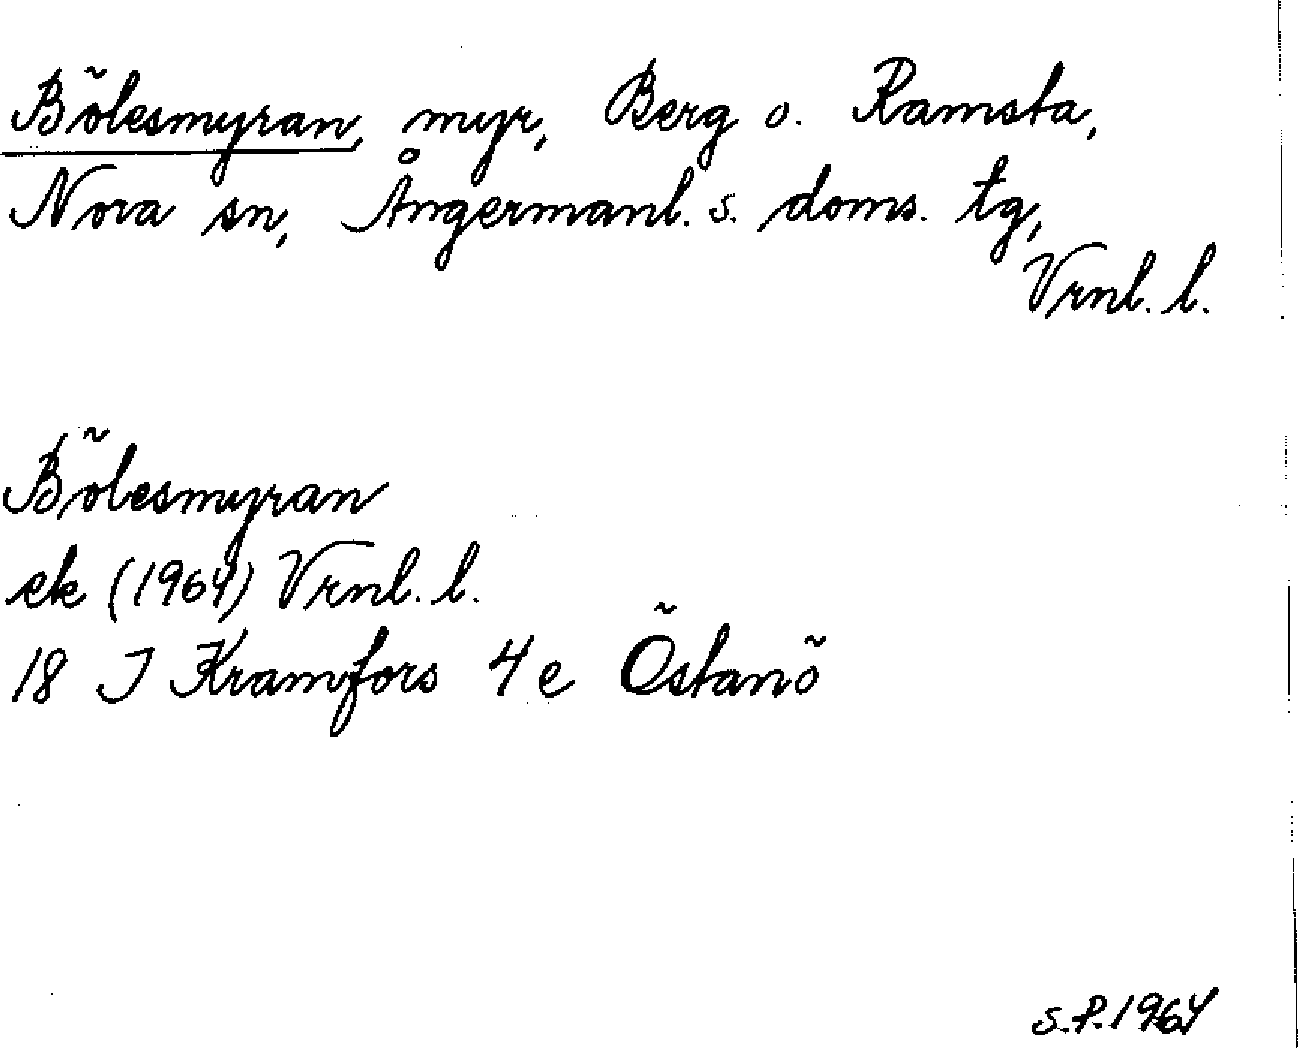 Bölesmyran, myr, Berg o. Ramsta,
Nora sn, Ångermanl. s. doms. tg,
Vrnl. l.
Bölesmyran
ek (1964) Vrnl. l.
18 J Kramfors 4 e Östanö
S.P. 1964